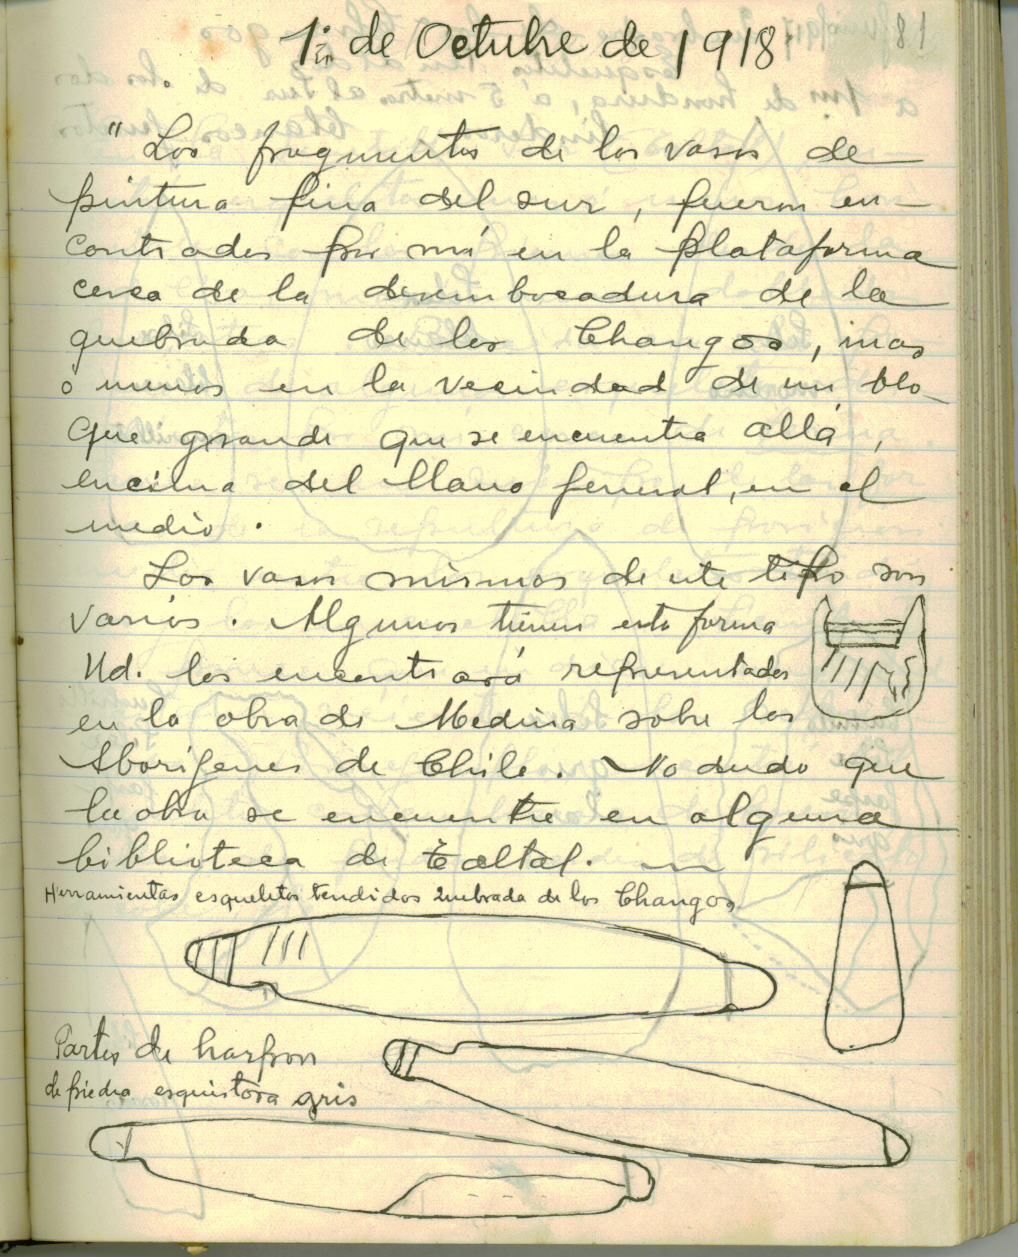 1º de Octubre de 1918
" Los fragmentos de los vasos de
pintura fina del sur, fueron en-
contrados por mí en la plataforma
cerca de la desembocadura de la
quebrada de los Changos, mas
o menos en la vecindad de un blo-
que grande que se encuentra allá,
encima del llano general, en el
medio.
Los vasos mismos de este tipo son
varios. Algunos tienen esta forma
Ud. los encontrará representados
en la obra de Medina sobre los
Aborígenes de Chile. No dudo que
la obra se encuentre en alguna
biblioteca de Taltal.
Herramientas esqueletos tendidos Quebrada de los Changos
Partes de harpon
de piedra esquistosa gris